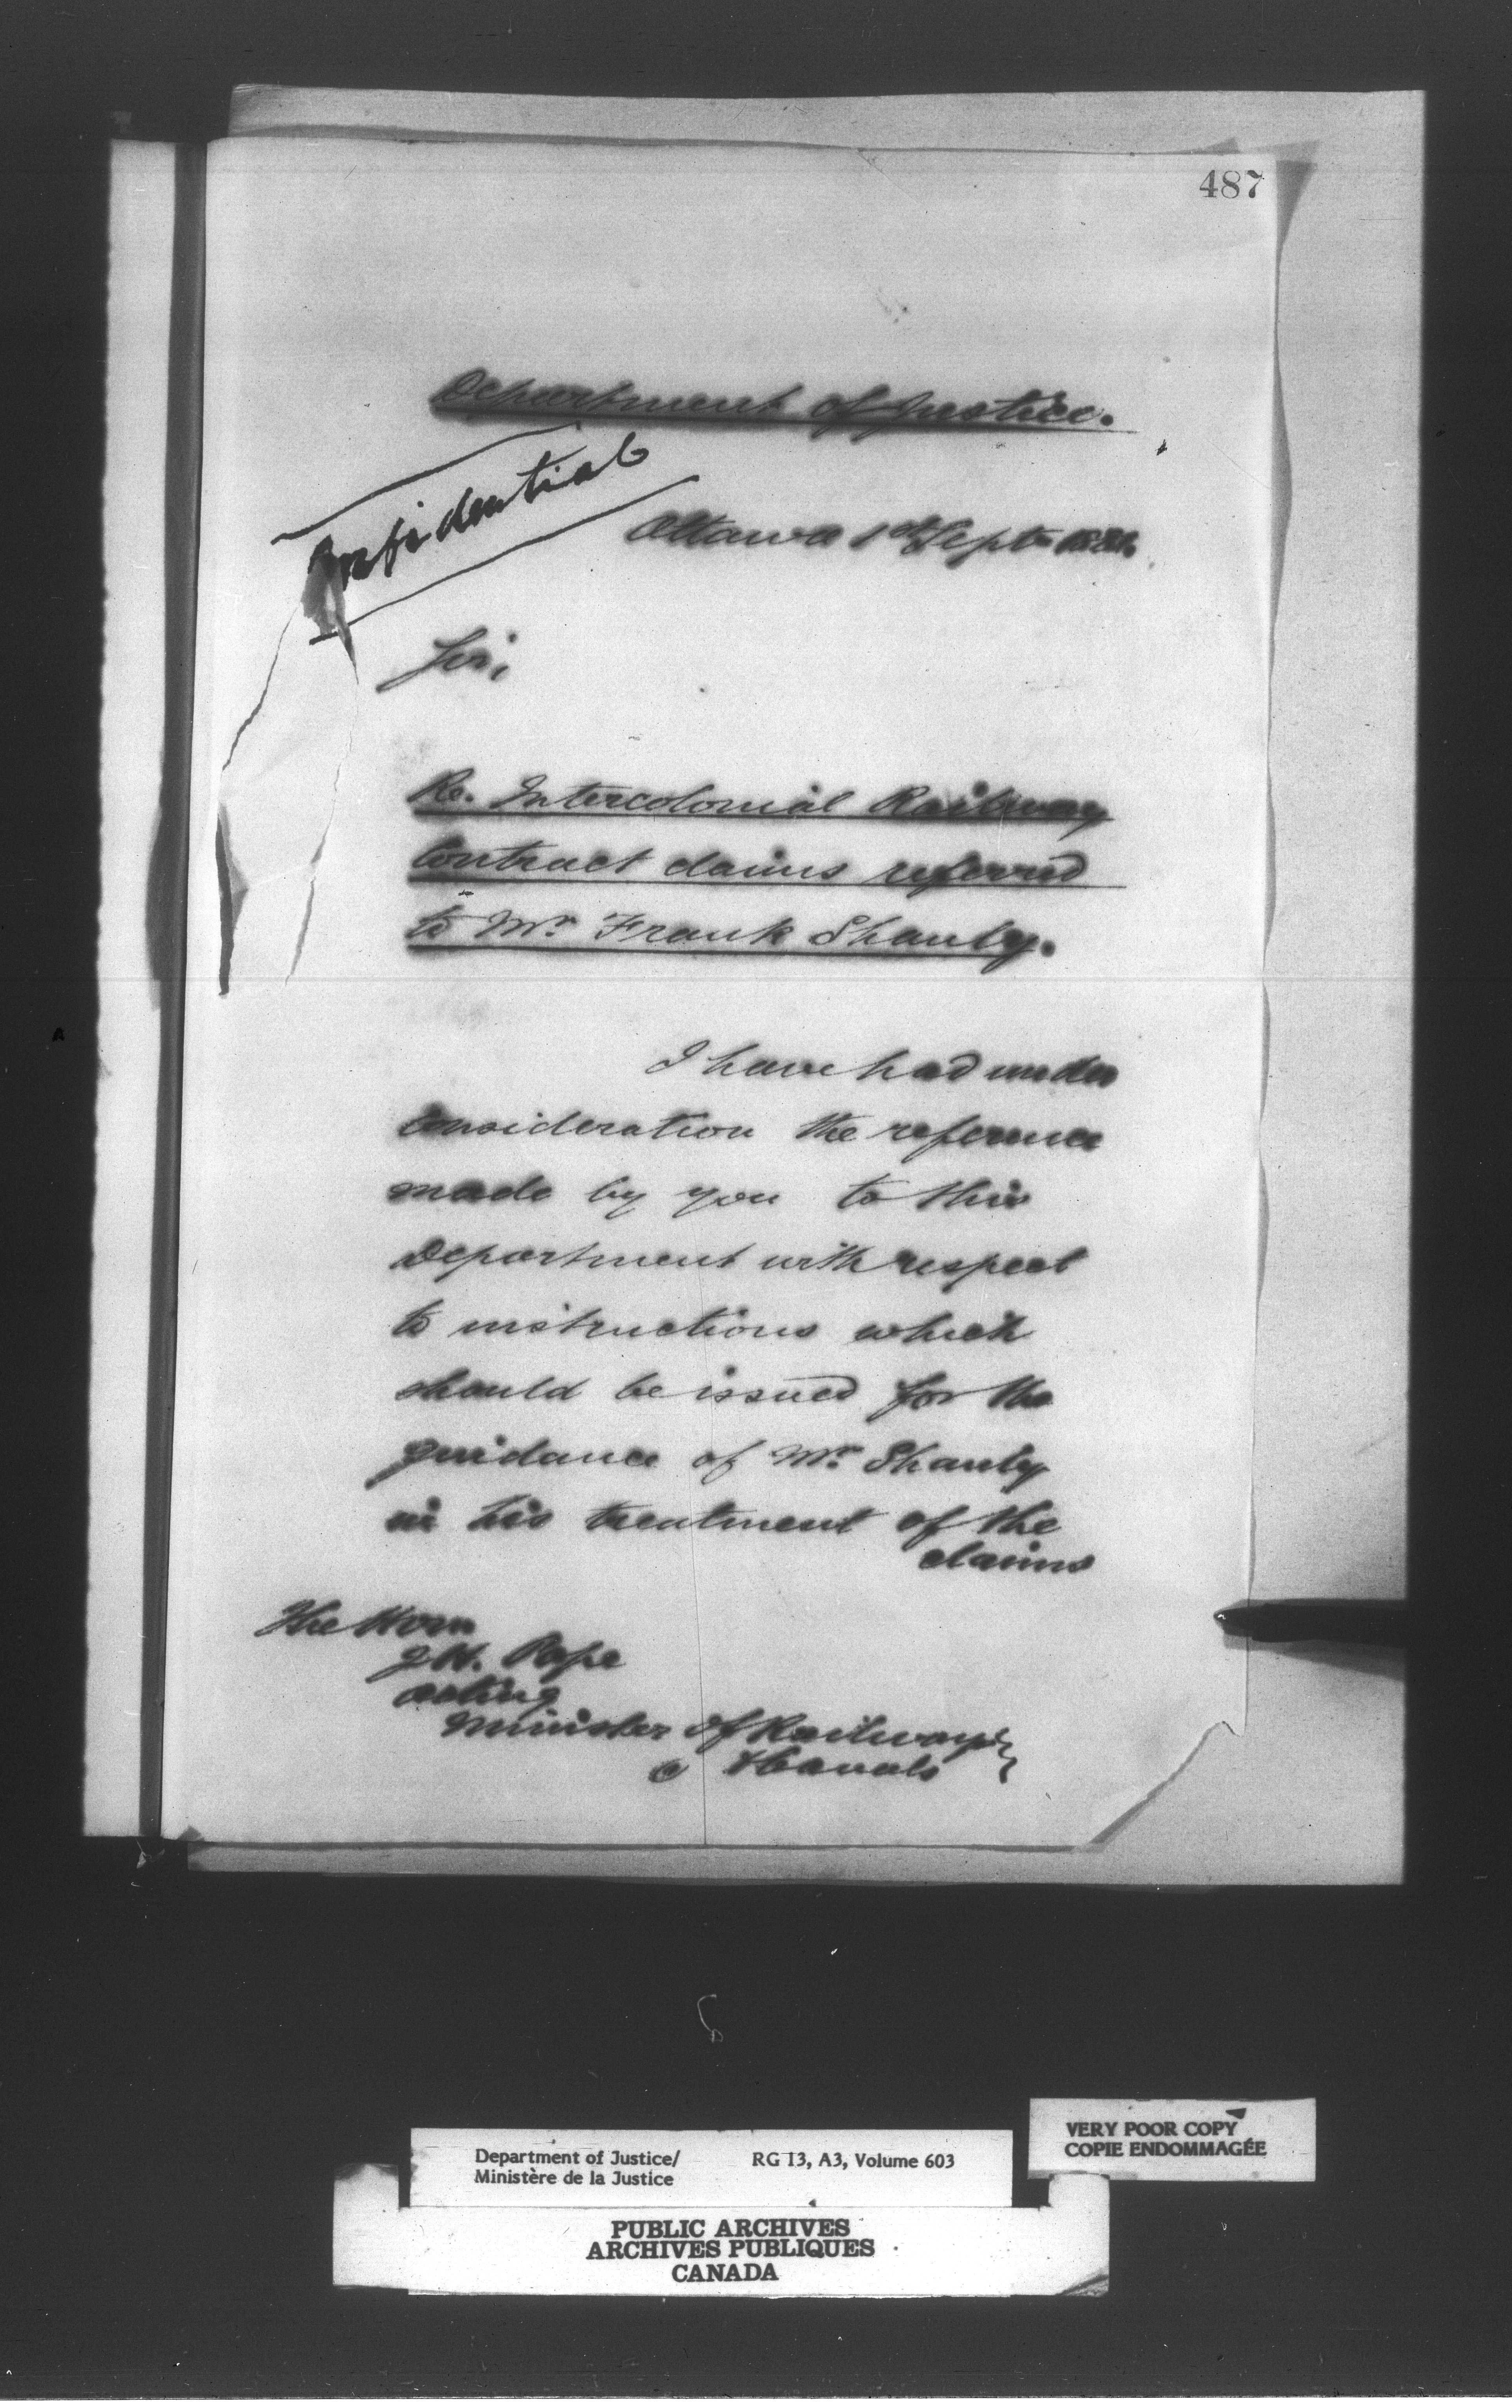 487
Department of Justice.
Confidential
Ottawa 1st Sept
Sir,
Re. Intercolonial Railway
Contract claims referred
to Mr. Frank Shanly.
I have had under
consideration the reference
made by you to this
Department with respect
to instructions which
should be issued for the
guidance of Mr. Shanly
in his treatment of the
claims
The Hon
J. H. Pope
Acting
Minister of Railways
& Canals
Department of Justice/
Ministère de la Justice
RG 13, A3, Volume 603
VERY POOR COPY
COPIE ENDOMMAGÉE
PUBLIC ARCHIVES
ARCHIVES PUBLIQUES
CANADA